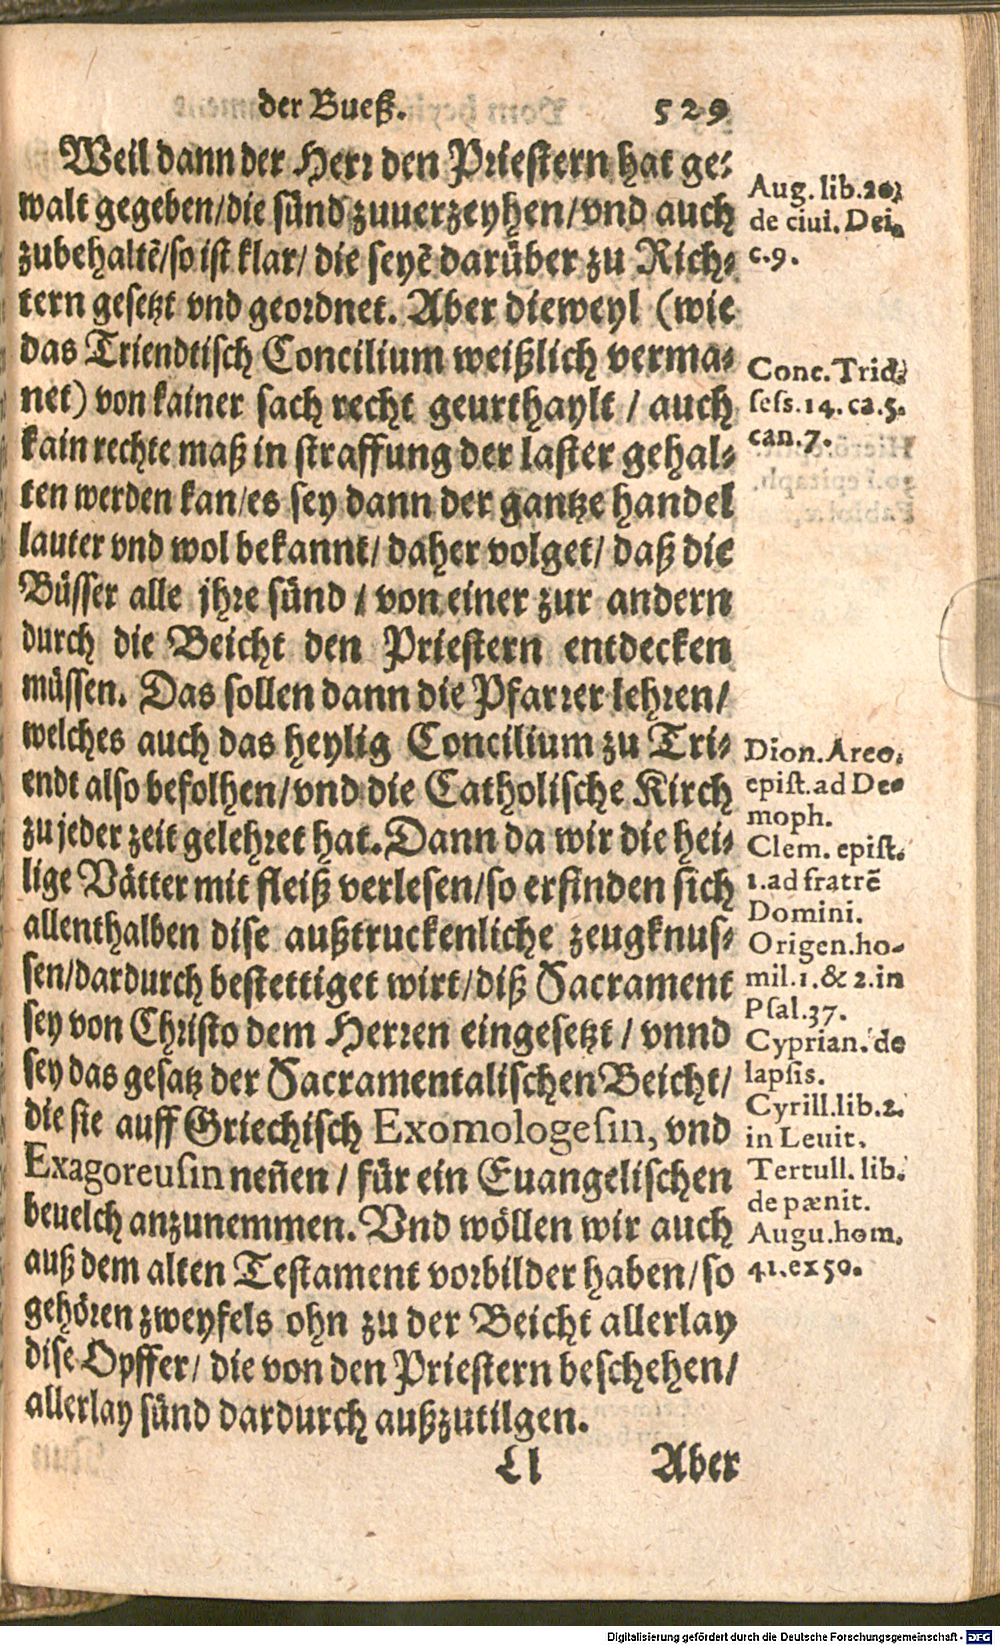 der Bueß. 529
Weil dann der Herr den Priestern hat ge-
walt gegeben/die sünd zuuerzeyhen/vnd auch
zubehaltẽ/so ist klar/ die seyẽ darüber zu Rich-
tern gesetzt vnd geordnet. Aber dieweyl (wie
das Triendtisch Concilium weißlich verma-
net) von kainer sach recht geurthaylt / auch
kain rechte maß in straffung der laster gehal-
ten werden kan/es sey dann der gantze handel
lauter vnd wol bekannt/ daher volget/ daß die
Büsser alle jhre sünd / von einer zur andern
durch die Beicht den Priestern entdecken
müssen. Das sollen dann die Pfarrer lehren/
welches auch das heylig Concilium zu Tri-
endt also befolhen/vnd die Catholische Kirch
zu jeder zeit gelehret hat. Dann da wir die hei-
lige Vätter mit fleiß verlesen/so erfinden sich
allenthalben dise außtruckenliche zeugknus-
sen/dardurch bestettiget wirt/diß Sacrament
sey von Christo dem Herren eingesetzt / vnnd
sey das gesatz der Sacramentalischen Beicht/
die sie auff Griechisch Exomologesin, vnd
Exagoreusin neñen / für ein Euangelischen
beuelch anzunemmen. Vnd wöllen wir auch
auß dem alten Testament vorbilder haben/so
gehören zweyfels ohn zu der Beicht allerlay
dise Opffer/ die von den Priestern beschehen/
allerlay sünd dardurch außzutilgen.
Ll Aber
Aug. lib. 20.
de ciui. Dei.
c.9.
Conc. Trid.
sess. 14. ca. 5.
can. 7.
Dion. Areo.
epist. ad De-
moph.
Clem. epist.
1. ad fratrẽ
Domini.
Origen. ho-
mil. 1. & 2. in
Psal. 37.
Cyprian. de
lapsis.
Cyrill. lib. 2.
in Leuit.
Tertull. lib.
de pænit.
Augu. hom.
41. ex 50.
Digitalisierung gefördert durch die Deutsche Forschungsgemeinschaft - DFG